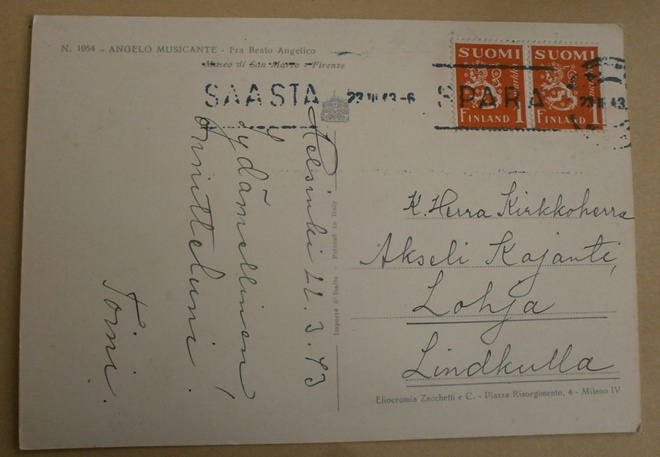 N. 1054 - ANGELO MUSICANTE - Fra Beato Angelico
Museo di San Marco - Firenze
SAASTA 22 III 43-6 SPARA
SUOMI
FINLAND 1
SUOMI
FINLAND 1
markka
Helsinki 22.3.43
Sydämellinen
onnitteluni!
Toini.
Importé d'Italie - Printed in Italy
K. Herra Kirkkoherra
Akseli Kajanti,
Lohja
Lindkulla
Eliocromia Zacchetti e C. - Piazza Risorgimento, 4 - Milano IV